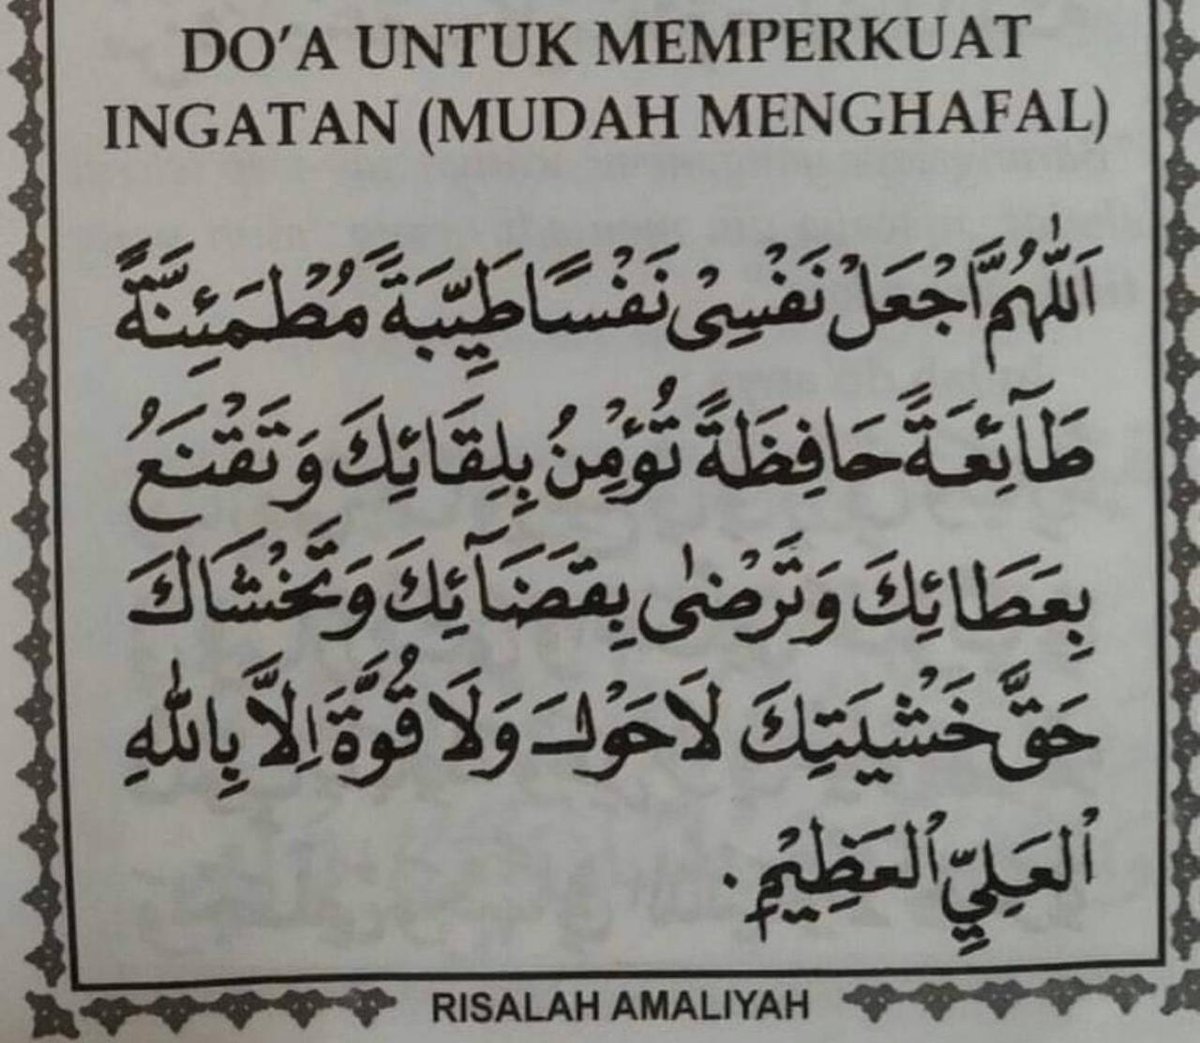 DO'A UNTUK MEMPERKUAT
INGATAN (MUDAH MENGHAFAL)
اَللّٰهُمَّ اجْعَلْ نَفْسِىْ نَفْسًا طَيِّبَةً مُطْمَئِنَّةً
طَآئِعَةً حَافِظَةً تُؤْمِنُ بِلِقَائِكَ وَتَقْنَعُ
بِعَطَائِكَ وَتَرْضٰى بِقَضَآئِكَ وَتَخْشَاكَ
حَقَّ خَشْيَتِكَ لَاحَوْلَ وَلَا قُوَّةَ اِلَّا بِاللهِ
الْعَلِيِّ الْعَظِيْمِ.
RISALAH AMALIYAH